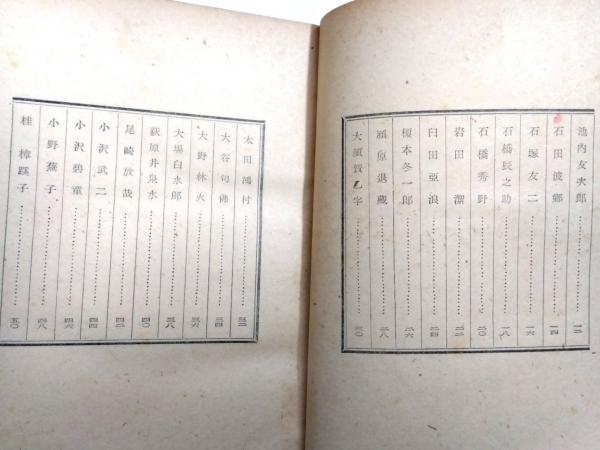 池内友次郎……………一二
石田波郷……………一四
石塚友二……………一六
石橋辰之助……………一八
石橋秀野……………二〇
岩田潔……………二二
臼田亞浪……………二四
榎本冬一郎……………二六
潁原退蔵……………二八
大須賀乙字……………三〇
太田鴻村……………三二
大谷句佛……………三四
大野林火……………三六
大場白水郎……………三八
荻原井泉水……………四〇
尾崎放哉……………四二
小沢武二……………四四
小沢碧童……………四六
小野蕪子……………四八
桂樟蹊子……………五〇